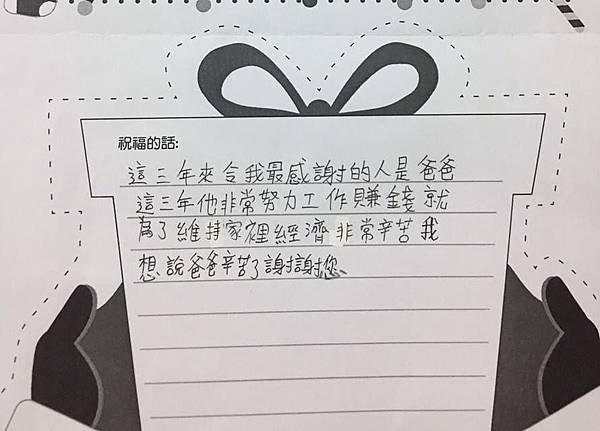 祝福的話:
這三年來令我最感謝的人是爸爸
這三年他非常努力工作賺錢就
為了維持家裡經濟非常辛苦我
想說爸爸辛苦了謝謝您、